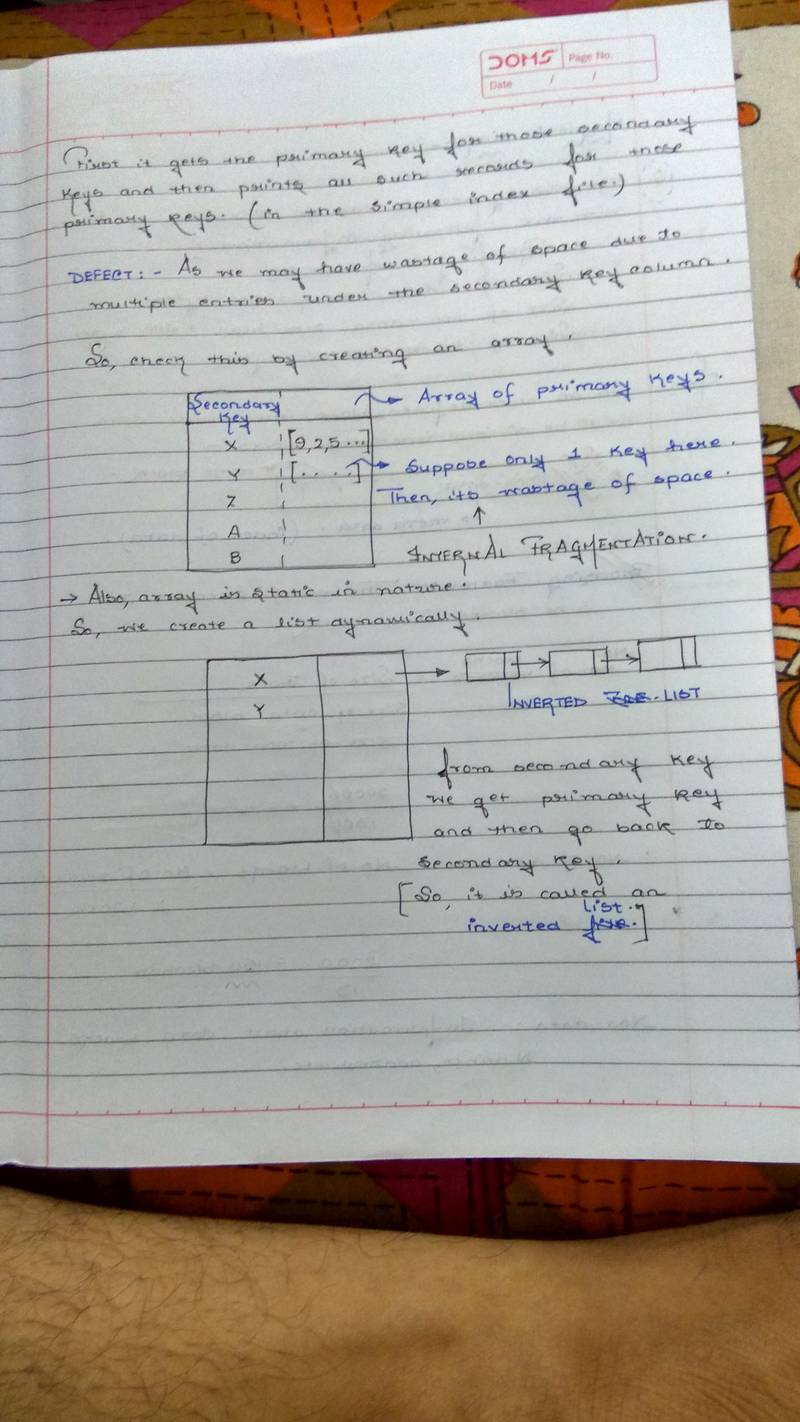 DOMS
Page No.
Date / /
First it gets the primary key for those secondary
keys and then prints all such records for these
primary keys. (in the simple index file.)
DEFECT: - As we may have wastage of space due to
multiple entries under the secondary key column.
So, check this by creating an array.
Secondary
Key
→ Array of primary keys.
X [9,2,5...]
Y [. . . .] → Suppose only 1 key here.
Z Then, its wastage of space.
↑
A
B INTERNAL FRAGMENTATION.
→ Also, array is static in nature.
So, we create a list dynamically.
X
Y
INVERTED LIST
from secondary key
we get primary key
and then go back to
secondary key.
[So, it is called an
list.
inverted file.]